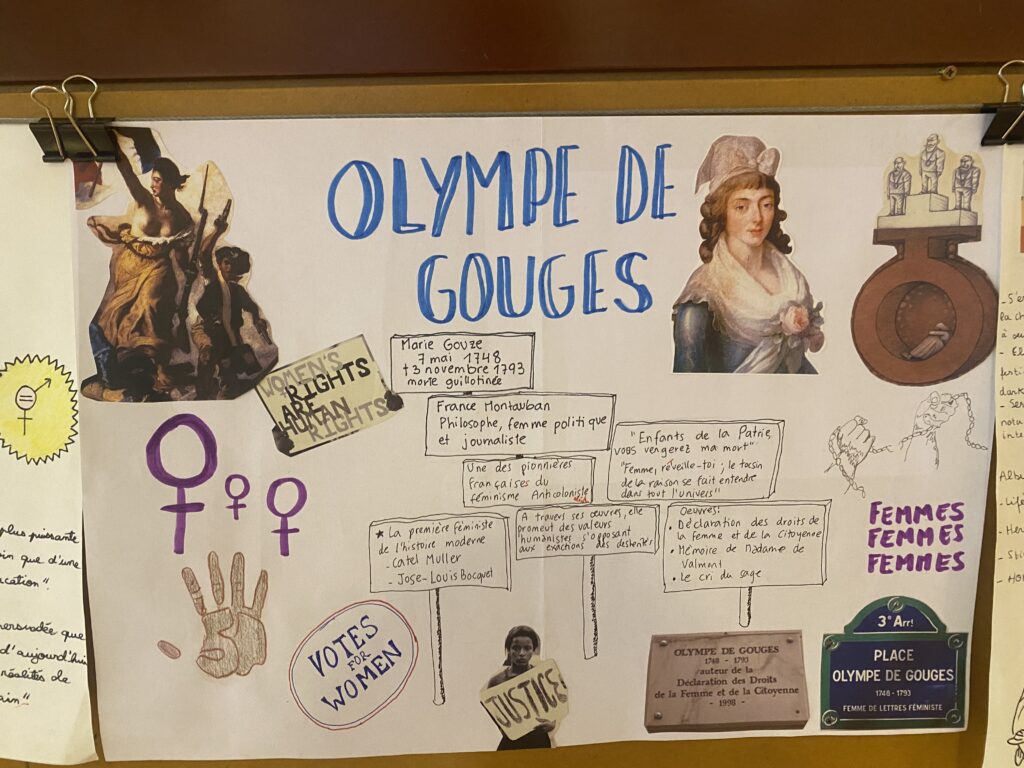 OLYMPE DE
GOUGES
WOMEN'S
RIGHTS
ARE
HUMAN
RIGHTS
Marie Gouze
7 mai 1748
† 3 novembre 1793
morte guillotinée
France Montauban
Philosophe, femme politique
et journaliste
"Enfants de la Patrie,
vous vengerez ma mort"
"Femme, réveille-toi ; le tocsin
de la raison se fait entendre
dans tout l'univers"
Une des pionnières
françaises du
féminisme Anticoloniste
★ La première féministe
de l'histoire moderne
- Catel Muller
- Jose-Louis Bocquet
A travers ses œuvres, elle
promeut des valeurs
humanistes s'opposant
aux exactions des
Oeuvres:
• Déclaration des droits de
la femme et de la citoyenne
• Mémoire de Madame de
Valmont
• Le cri du sage
FEMMES
FEMMES
FEMMES
VOTES
FOR
WOMEN
JUSTICE
OLYMPE DE GOUGES
1748 - 1793
auteur de la
Déclaration des Droits
de la Femme et de la Citoyenne
- 1998 -
3e Arrt
PLACE
OLYMPE DE GOUGES
1748 - 1793
FEMME DE LETTRES FÉMINISTE
plus puissante
que d'une
persuadée que
d'aujourd'hui
réalités de